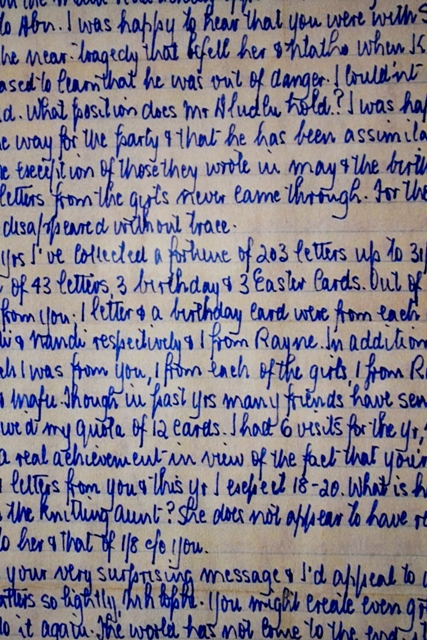 do Abn. I was happy to hear that you were with S
the near-tragedy that befell her & Ntatho when K
ased to learn that he was out of danger. I couldn't
d. What position does Mr Dludlu hold? I was hap
e way for the party & that he has been assimila
e exception of those they wrote in may & the birth
letters from the girls never came through. For the
disappeared without trace.
yrs I've collected a fortune of 203 letters up to 31
of 43 letters, 3 birthday & 3 Easter cards. Out of
from you. 1 letter & a birthday card were from each
i & Nandi respectively & 1 from Rayne. In addition
ch 1 was from you, 1 from each of the girls, 1 from R
mafu. Though in past yrs many friends have sen
ved my quota of 12 cards. I had 6 visits for the yr,
a real achievement in view of the fact that your
letters from you & this yr I expect 18-20. What is h
the knitting aunt? She does not appear to have re
to her & that of 1/8 c/o you.
your very surprising message & I'd appeal to
matters so lightly, You might create even gr
do it again. The world has not come to the end